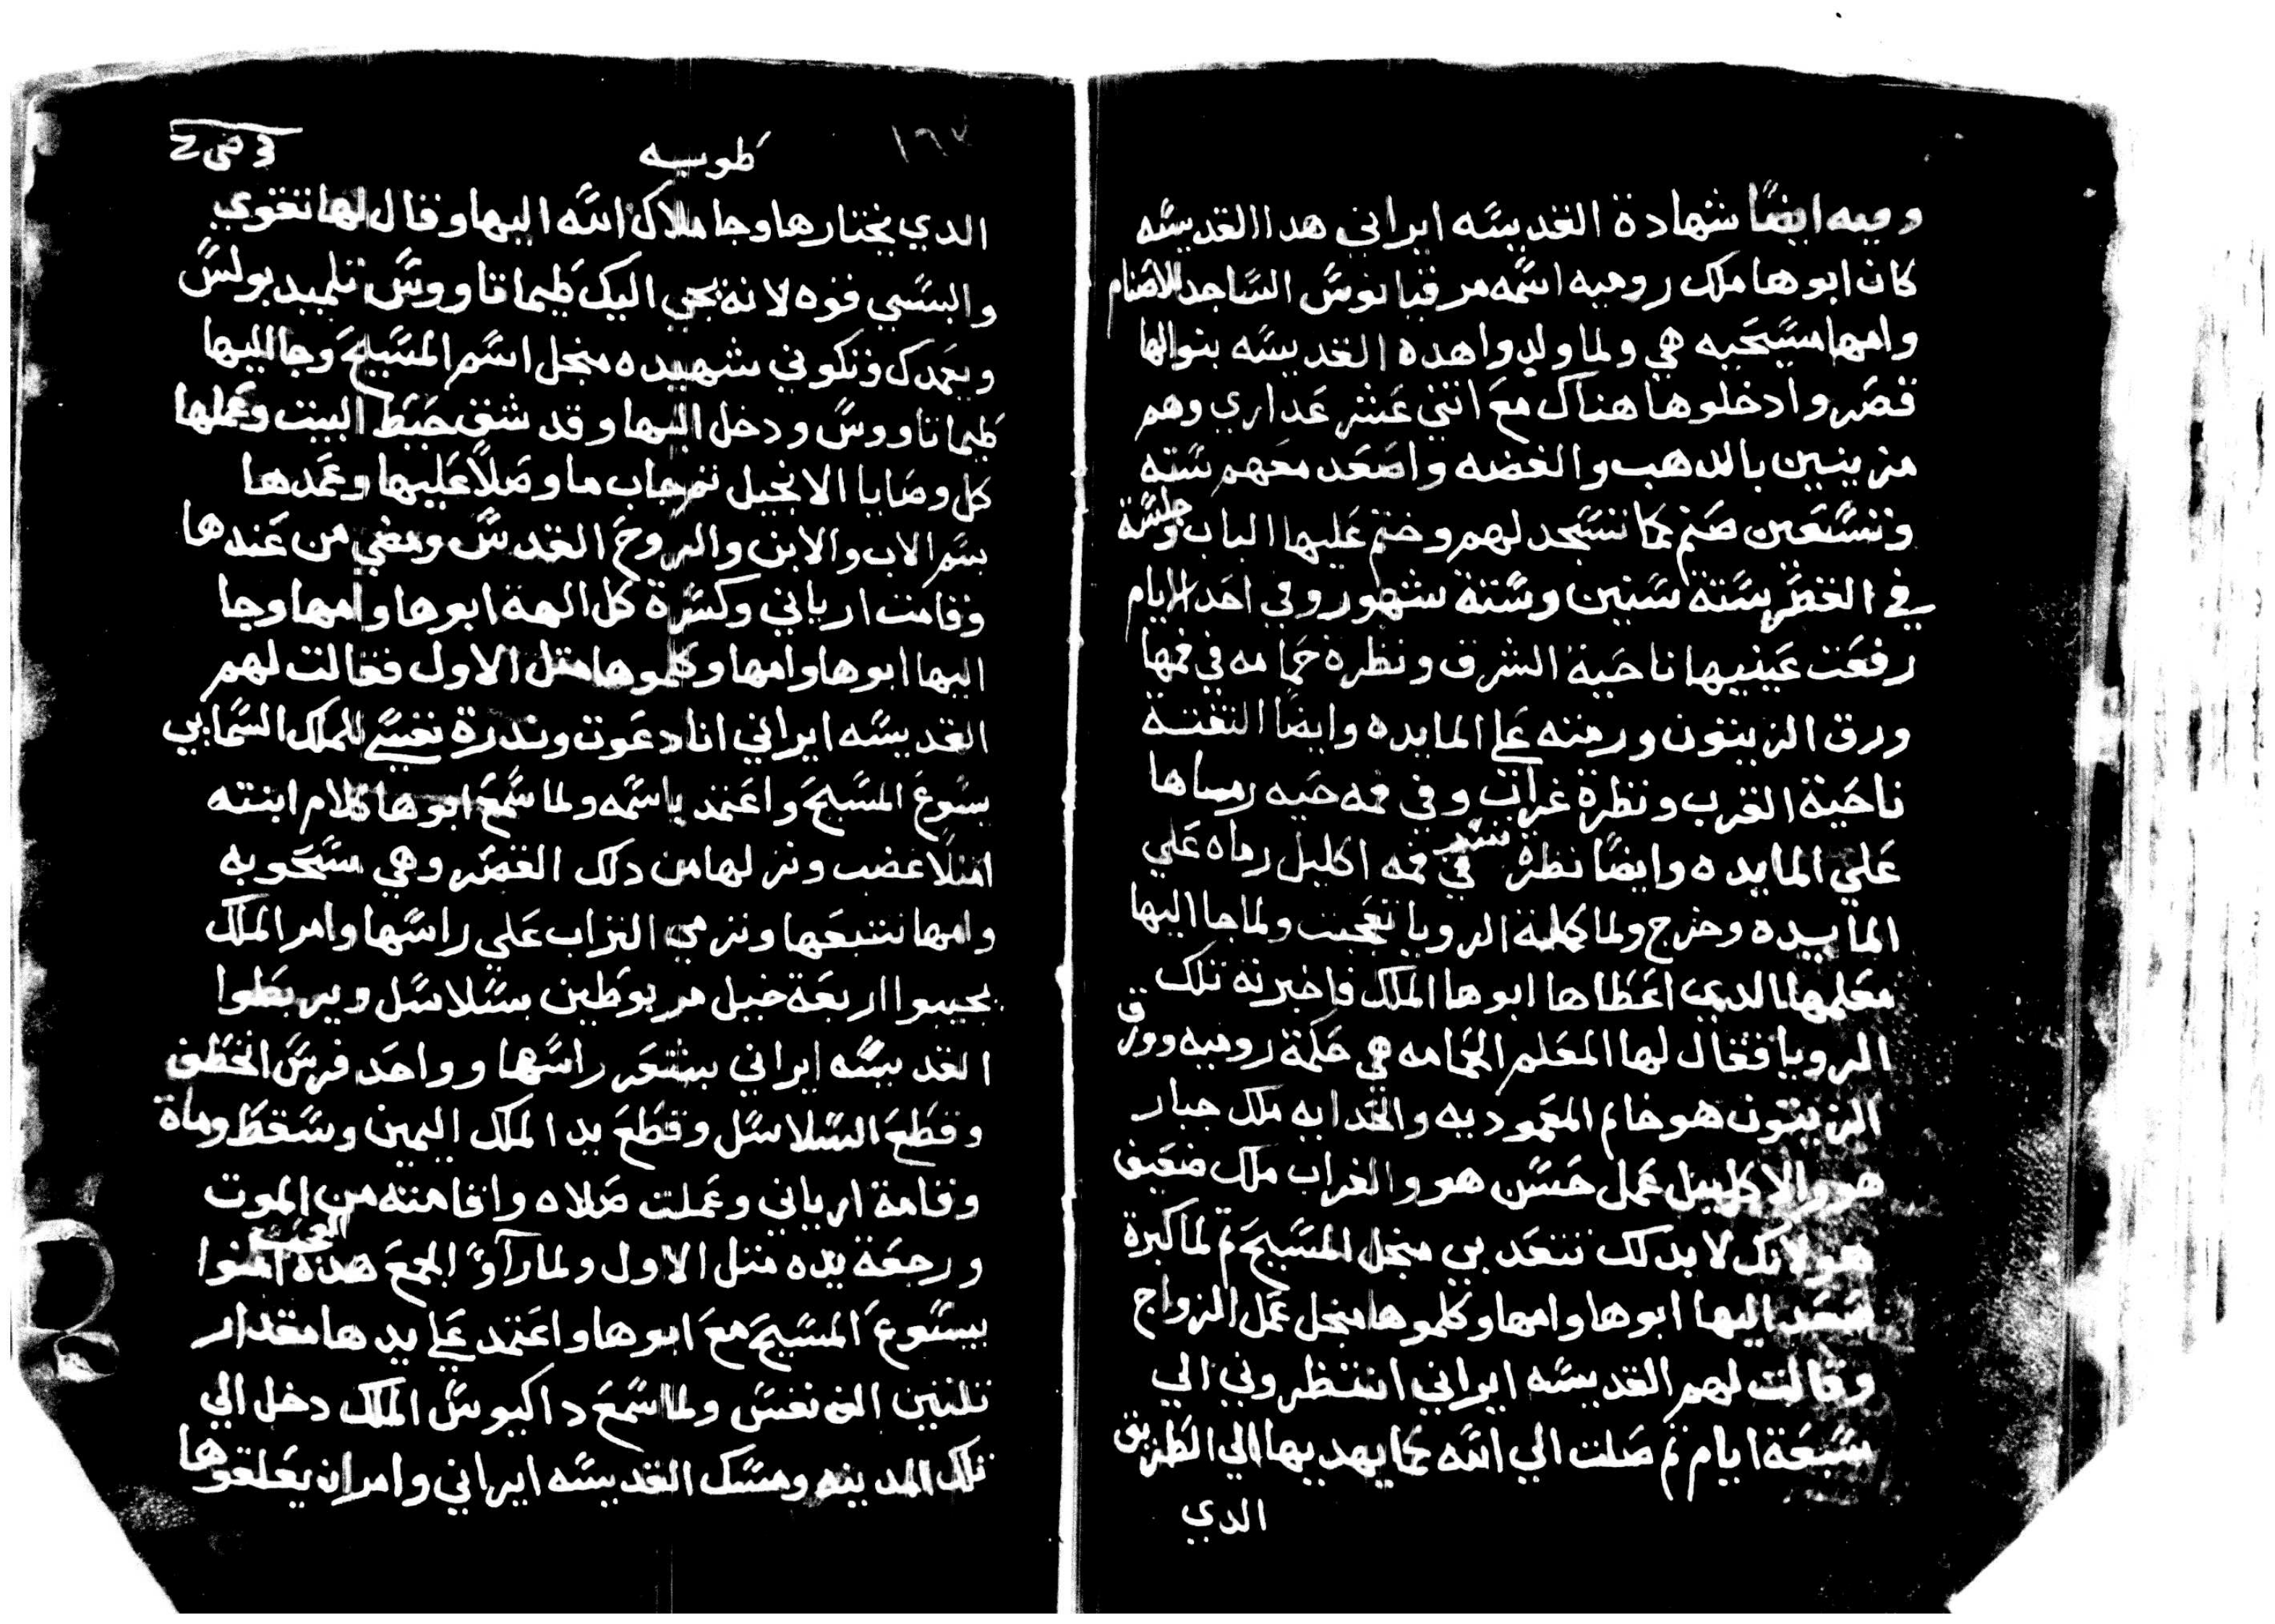 وفيه ايضًا شهادة القديسه ايراني هدا القديسه
كان ابوها ملك روميه اسمه مرقيانوس الساجد للاصنام
وامها مسيحيه هي ولما ولدوا هده القديسه بنوالها
قصر وادخلوها هناك مع اتني عشر عداري وهم
مزينين بالدهب والفضه واصعد معهم سته
وتسعين صنم كما تسجد لهم وختم عليها الباب وجلسة
في القصر ستة سنين وستة شهور وفي احد الايام
رفعت عينيها ناحية الشرق ونظرة حمامه في فمها
ورق الزيتون ورمته علي المايده وايضًا التفتة
ناحية الغرب ونظرة غراب وفي فمه حيه رماها
علي المايده وايضًا نظرة نسر في فمه اكليل رماه علي
المايده وخرج ولما كملة الرويا تعجبت ولما جا اليها
معلمها الدي اعطاها ابوها الملك فاخبرته تلك
الرويا فقال لها المعلم الحمامه هي حكمة روميه وورق
الزيتون هو خاتم المعموديه والحدايه ملك جبار
هو والاكليل عمل حسن هو والغراب ملك ضعيف
هو لانك لابد لك تتعدبي منجل المسيح تم لما كبرة
صعد اليها ابوها وامها وكلموها منجل عمل الزواج
وقالت لهم القديسه ايراني انتظروني الي
سبعة ايام تم صلت الي الله كما يهديها الي الطريق
الدي
طوبيه
الدي يختارها وجا ملاك الله اليها وقال لها تقوي
والبسي قوه لانه يجي اليك طيماتاووس تلميد بولس
ويعمدك وتكوني شهيده منجل اسم المسيح وجا اليها
طيماتاووس ودخل اليها وقد شق حيط البيت وعملها
كل وصايا الانجيل تم جاب ما وصلا عليها وعمدها
بسم الاب والابن والروح القدس ومضي من عندها
وقامت ارياني وكسرة كل الهة ابوها وامها وجا
اليها ابوها وامها وكلموها متل الاول فقالت لهم
القديسه ايراني انا دعوت وندرة نفسي للملك السمايي
يسوع المسيح واعتمد باسمه ولما سمع ابوها كلام ابنته
امتلا غضب ونزلها من دلك القصر وهي مسحوبه
وامها تتبعها وترمي التراب علي راسها وامر الملك
يجيبوا اربعة خيل مربوطين بسلاسل ويربطوا
القديسه ايراني بشعر راسها وواحد فرس انخطف
وقطع السلاسل وقطع يد الملك اليمين وسقط وماة
وقامة ارياني وعملت صلاه واقامته من الموت
ورجعة يده متل الاول ولما راوا الجمع هده العجب امنوا
بيسوع المسيح مع ابوها واعتمد علي يدها مقدار
تلتين الف نفس ولما سمع داكيوس الملك دخل الي
تلك المدينه ومسك القديسه ايراني وامر ان يعلقوها